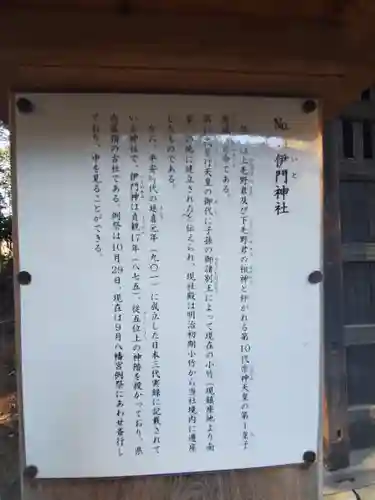 No.
いと
伊門神社
は上毛野君及び下毛野君の祖神と仰がれる第10代崇神天皇の第1皇子
命である。
行天皇の御代に子孫の御諸別王によって現在の小竹（現鎮座地より南
に建立されたと伝えられ、現社殿は明治初期小竹から当社境内に遷座
したものである。
平安時代の延喜元年（九〇一）に成立した日本三代実録に記載されて
いる神社で、伊門神は貞観17年（八七五）、従五位上の神階を授かっており、県
内屈指の古社である。例祭は10月29日、現在は9月八幡宮例祭にあわせ斎行し
ており、中を見ることができる。